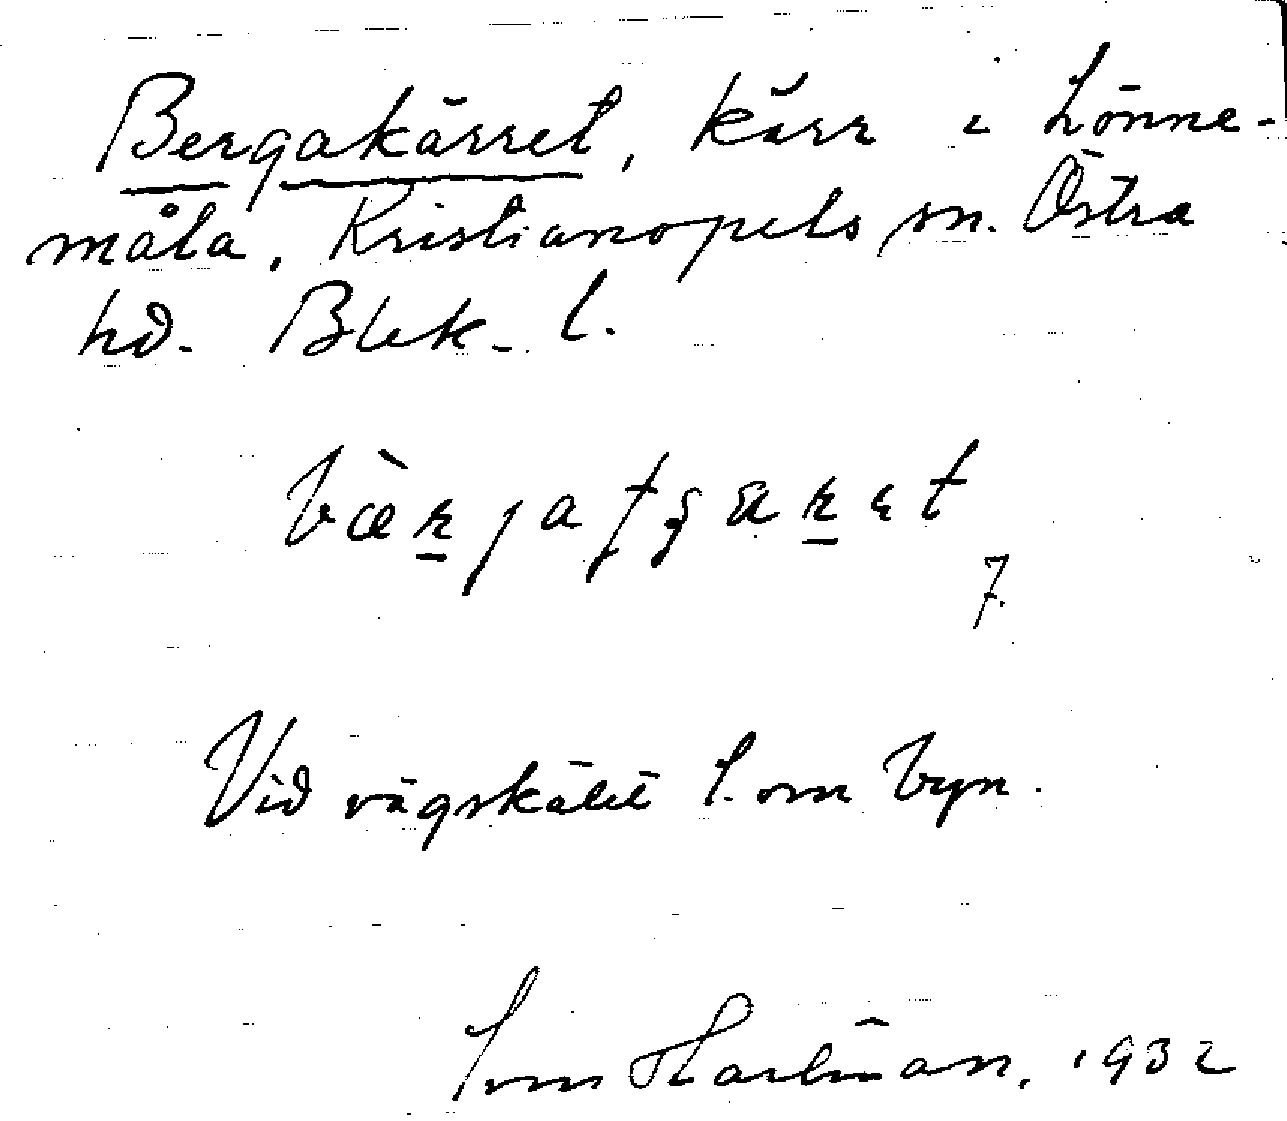 Bergakärret, kärr i Lönne-
måla, Kristianopels sn. Östra
hd. Blek. l.
7.
Vid vägskälet S. om byn.
Sven Hartman, 1932